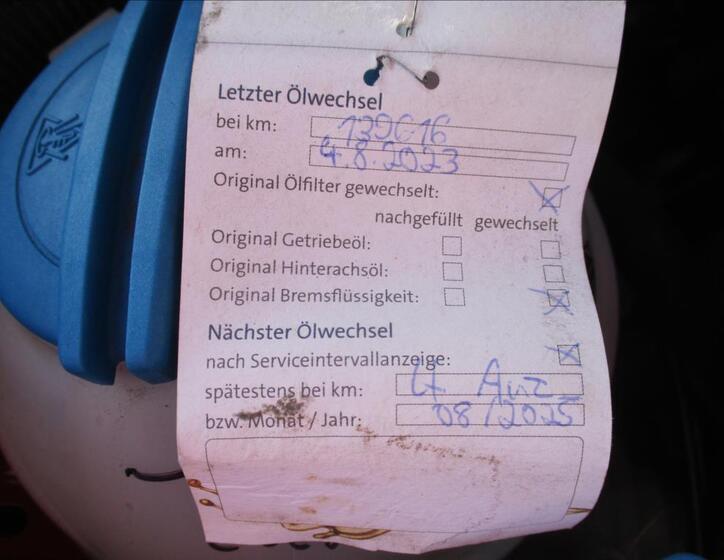 Letzter Ölwechsel
bei km: 139616
am: 4.8.2023
Original Ölfilter gewechselt:
nachgefüllt gewechselt
Original Getriebeöl:
Original Hinterachsöl:
Original Bremsflüssigkeit:
Nächster Ölwechsel
nach Serviceintervallanzeige:
spätestens bei km: Lt Anz
bzw. Monat / Jahr: 08/2025